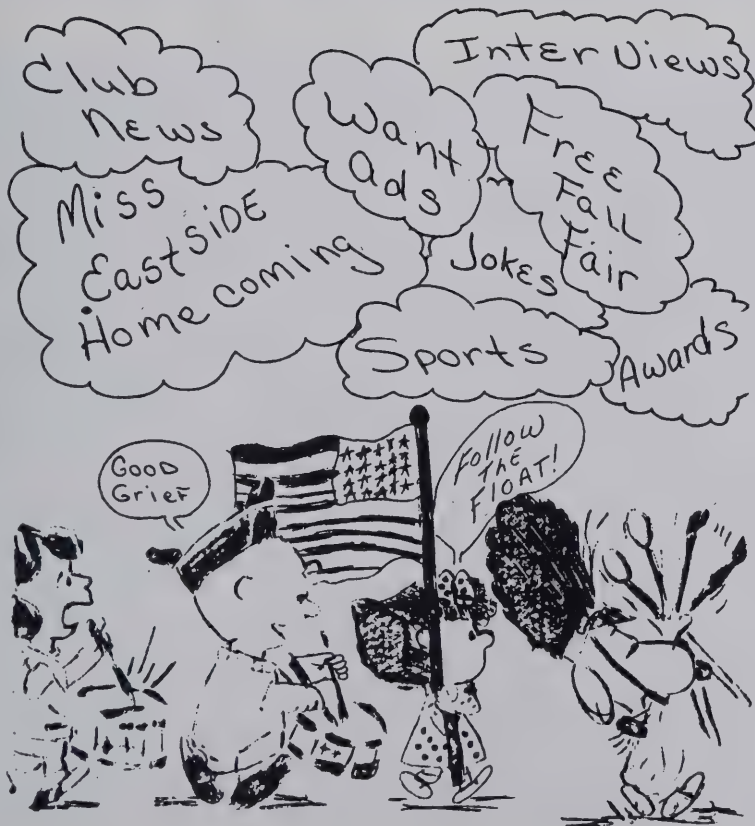 Club
News
Inter Views
Want
Ads
Free
Fall
Fair
Miss
EastSIDE
Home coming
Jokes
Sports
Awards
GOOD
GriEF
FOLLOW
THE
FLOAT!